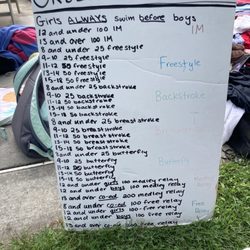 Girls ALWAYS swim before boys
12 and under 100 IM
13 and over 100 IM
IM
8 and under 25 freestyle
9-10 25 freestyle
11-12 50 freestyle
Freestyle
13-14 50 freestyle
15-18 50 freestyle
8 and under 25 backstroke
9-10 25 backstroke
11-12 50 backstroke
Backstroke
13-14 50 backstroke
15-18 50 backstroke
8 and under 25 breaststroke
9-10 25 breaststroke
11-12 50 breaststroke
13-14 50 breaststroke
15-18 50 breaststroke
8 and under 25 butterfly
9-10 25 butterfly
11-12 50 butterfly
Butterfly
13-14 50 butterfly
15-18 50 butterfly
12 and under girls 100 medley relay
12 and under boys 100 medley relay
13 and over co-ed 200 medley relay
8 and under co-ed 100 free relay
12 and under girls 100 free relay
Free
12 and under boys 100 free relay
Relay
13 and over co-ed 200 free relay